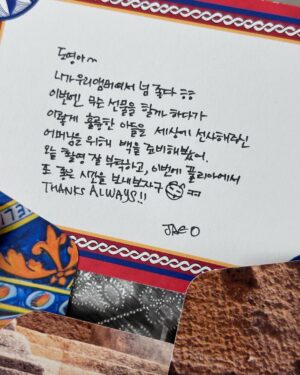 도영아~
너가 우리앰버여서 넘 좋다 ㅎㅎ
이번엔 무슨 선물을 할까 하다가
이렇게 훌륭한 아들을 세상에 선사해주신
어머님을 위해 백을 준비해봤어.
오늘 촬영 잘 부탁하고, 이번에 풀리아에서
또 좋은 시간을 보내보자구 ㅋㅋ
THANKS ALWAYS!!
JAE O